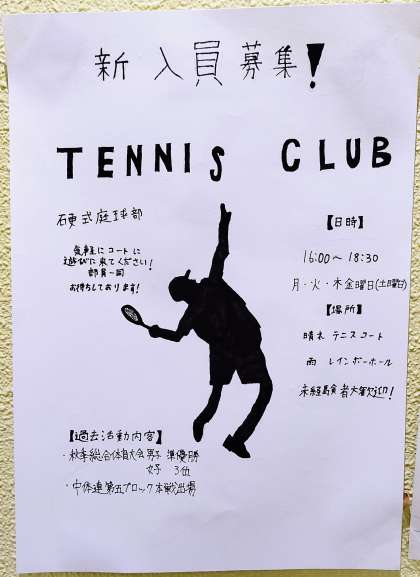 新入員募集!
TENNIS CLUB
硬式庭球部
気軽にコートに
遊びに来てください!
部員一同
お待ちしております!
【日時】
16:00〜18:30
月・火・木金曜日(土曜日)
【場所】
晴れ テニスコート
雨 レインボーホール
未経験者大歓迎!
【過去活動内容】
・秋季総合体育大会男子 準優勝
女子 3位
・中体連第五ブロック本戦出場